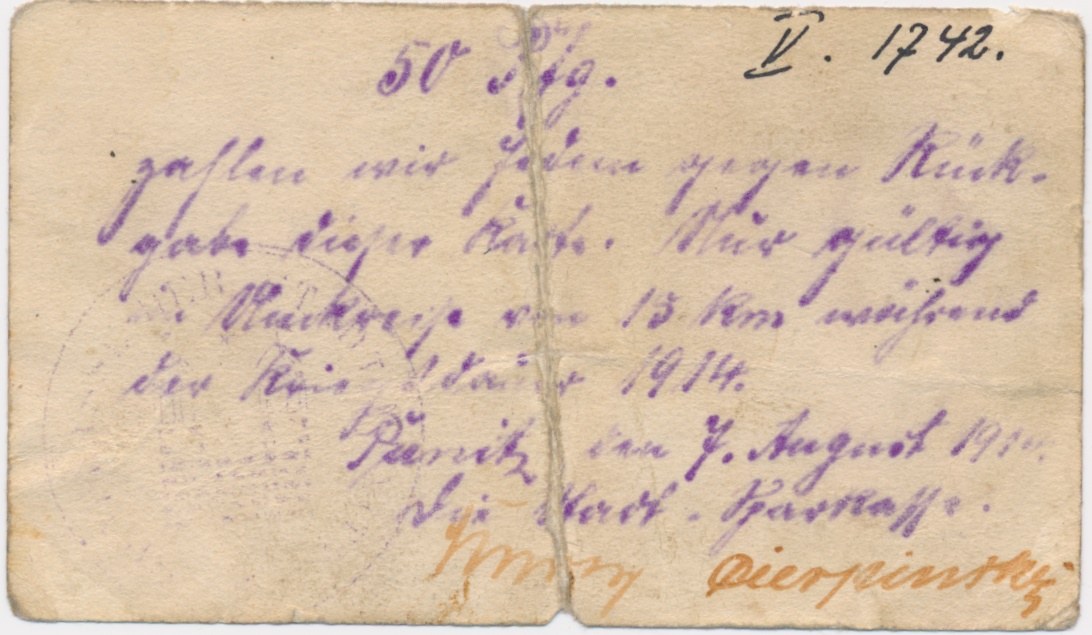 V. 1742.
50 Pfg.
zahlen wir Jedem gegen Rück-
gabe dieser Karte. Nur gültig
von 15 km während
der Kriegsdauer 1914.
Punitz den 7. August 1914.
Die Stadt-Sparkasse.
Cierpinski